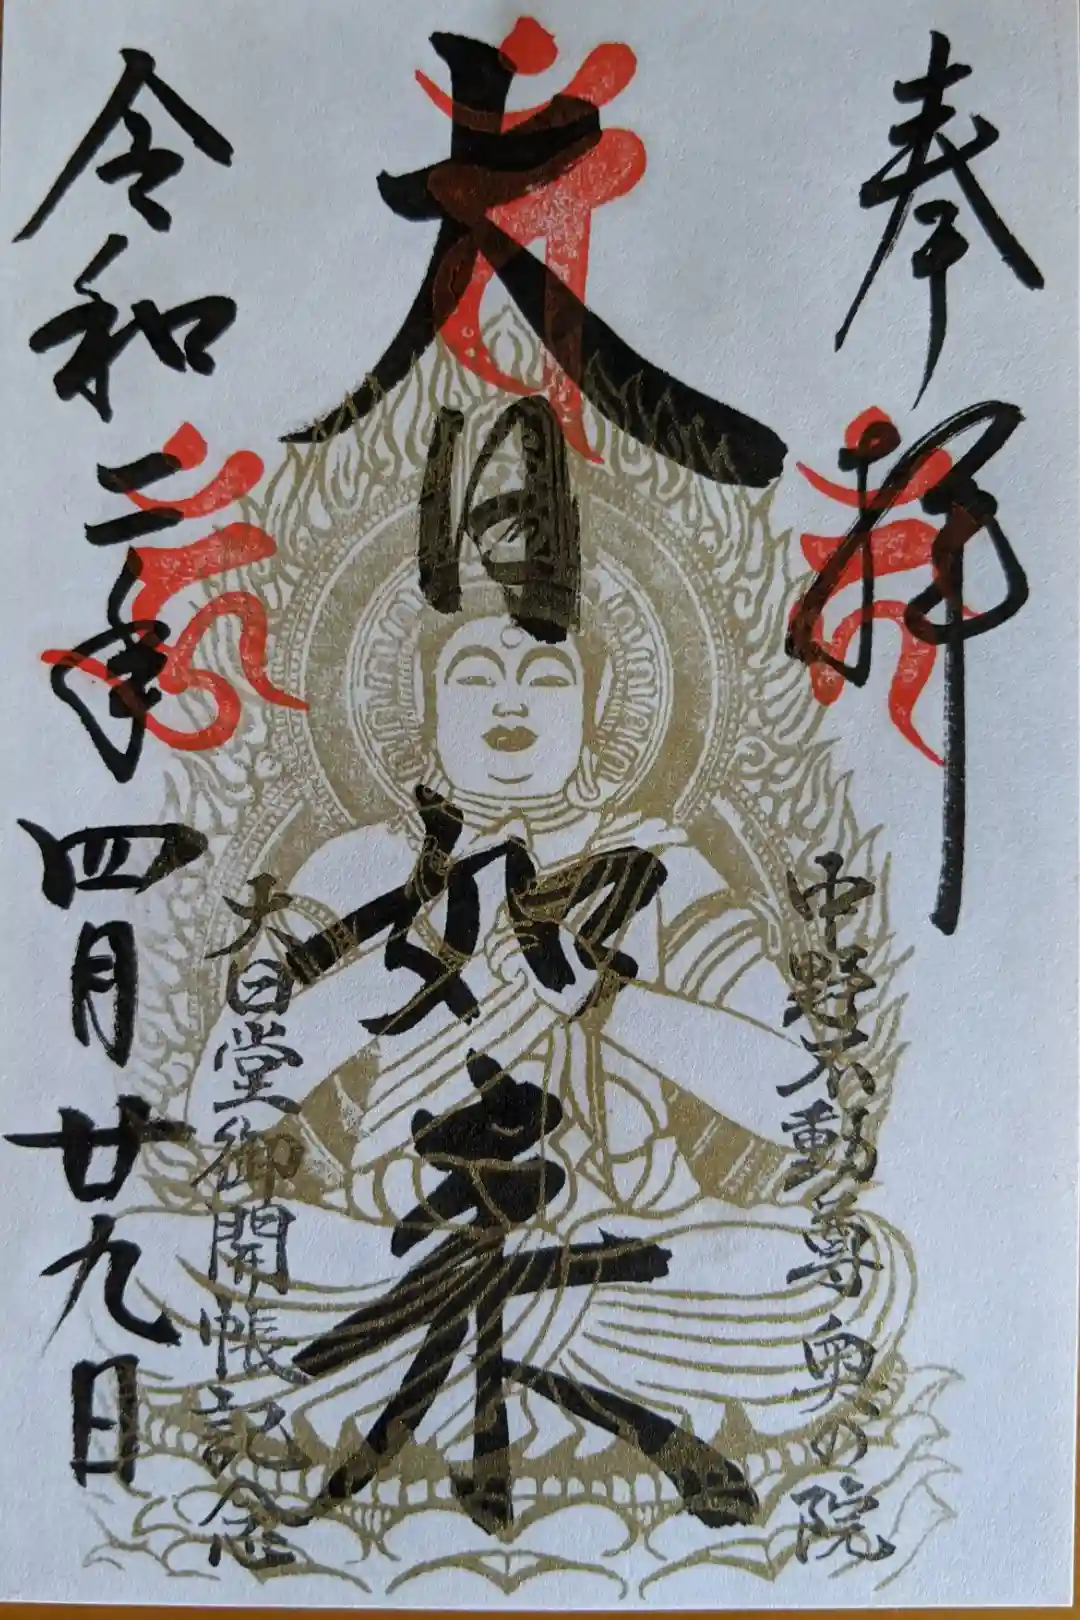 奉拝
中野不動尊奥の院
大日如来
大日堂御開帳記念
令和二年四月廿九日